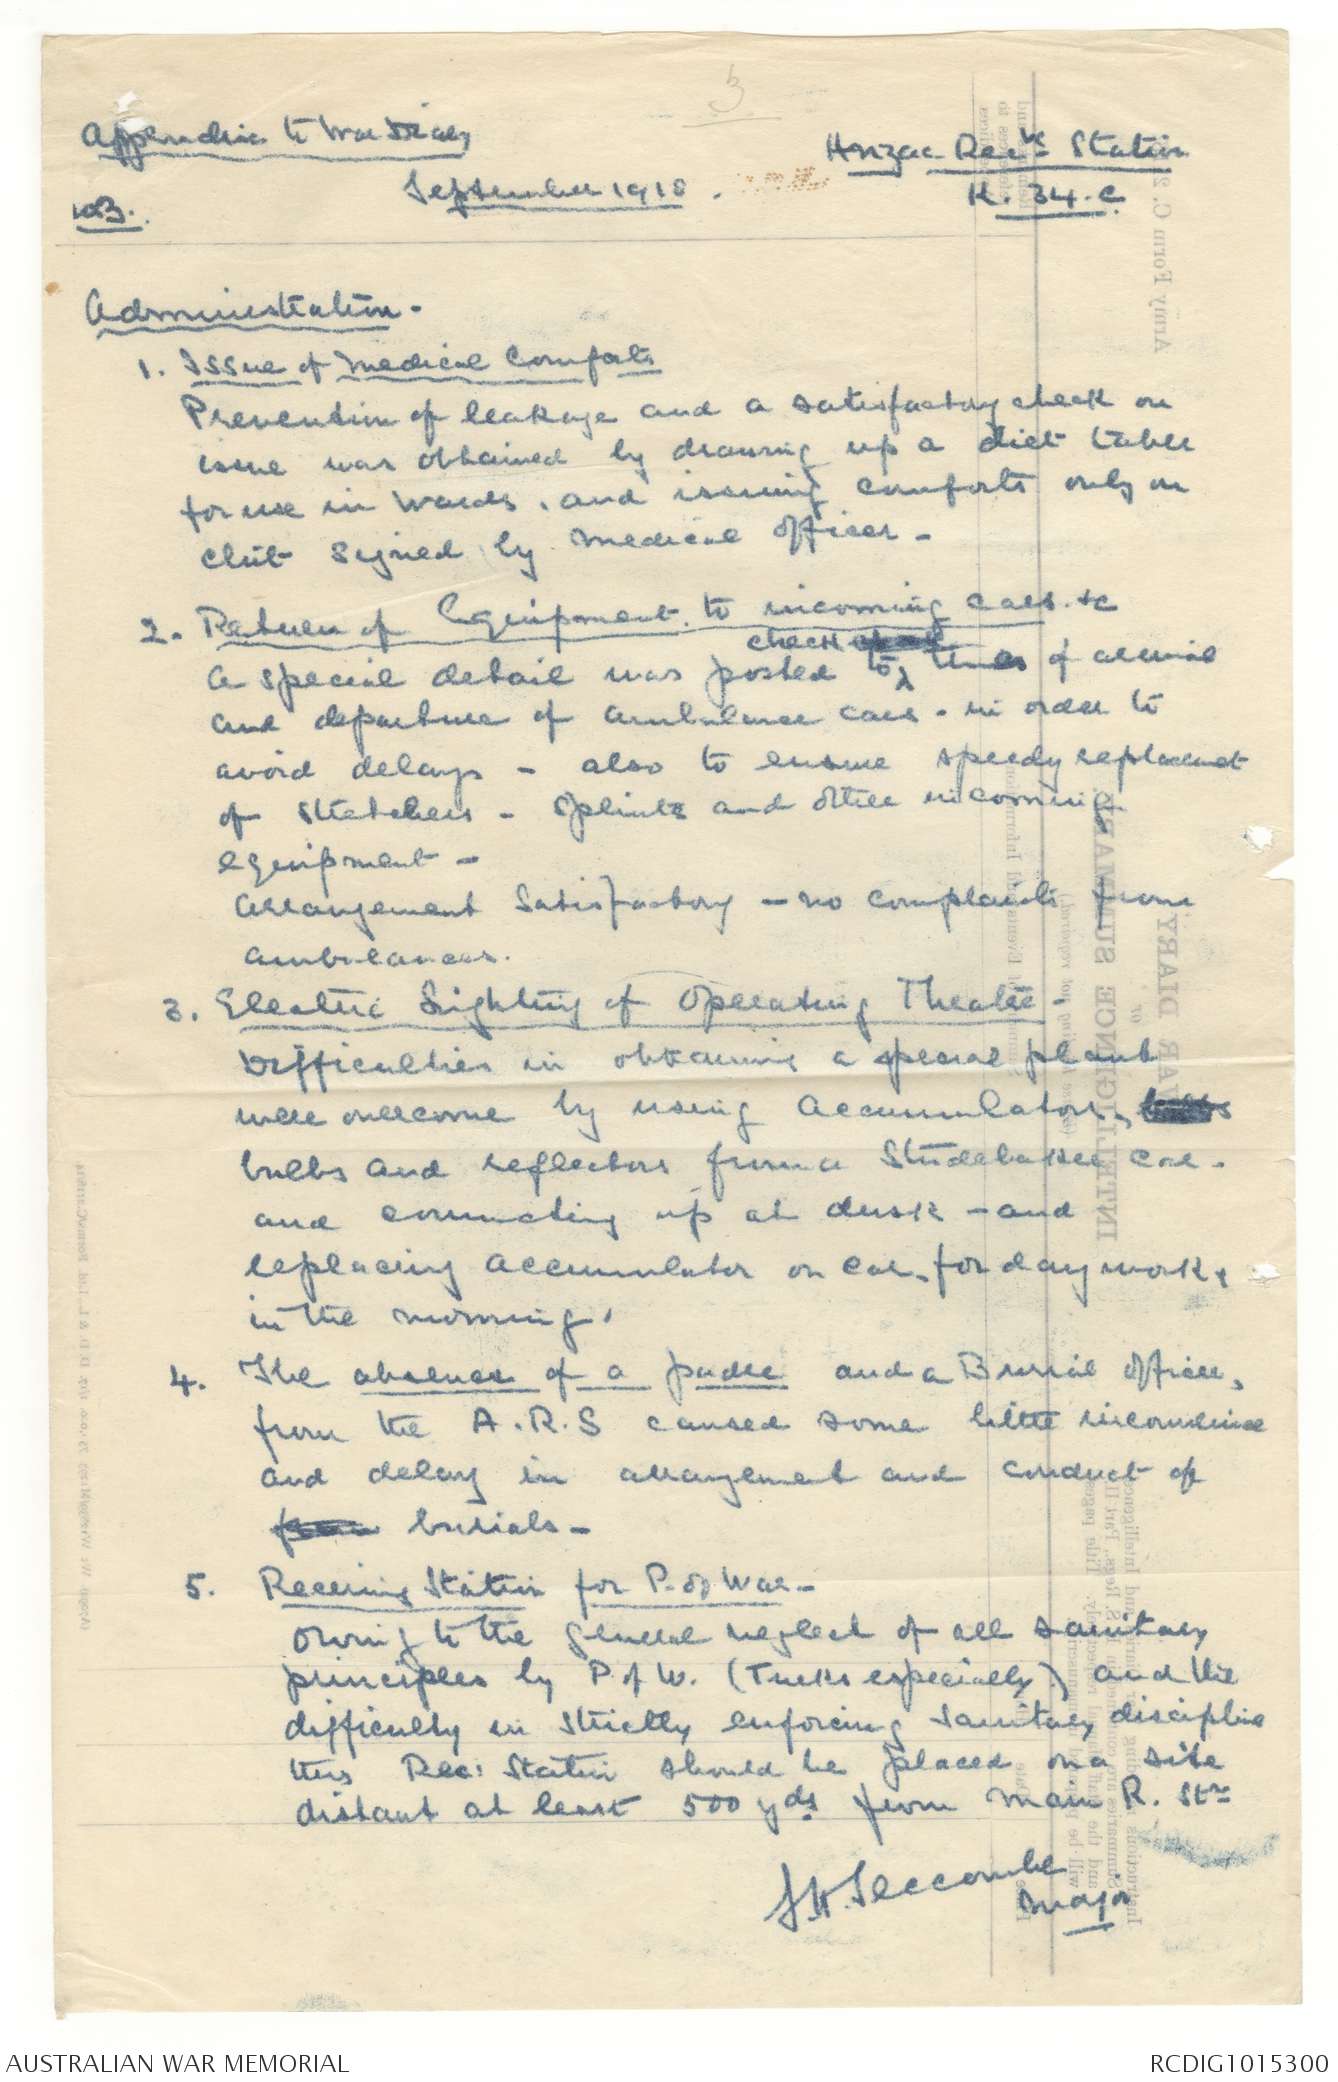 3
Appendix to War Diary
Anzac Recvg Station
September 1918.
K. 34. C
Administration -
1. Issue of Medical Comforts
Prevention of leakage and a satisfactory check on
issue was obtained by drawing up a diet table
for use in wards, and issuing comforts only on
chit signed by medical officer -
2. Return of Equipment to incoming cars &c
check
A special detail was posted to times of arrival
and departure of ambulance cars - in order to
avoid delays - also to ensure speedy replacement
of stretchers - splints and other incoming
equipment -
Arrangement satisfactory - no complaints from
ambulances.
3. Electric Lighting of Operating Theatre -
Difficulties in obtaining a special plant
were overcome by using accumulators,
bulbs and reflectors from a Studebaker car -
and connecting up at dusk - and
replacing accumulator on car, for day work,
in the morning.
4. The absence of a padre and a Burial officer,
from the A.R.S caused some little inconvenience
and delay in arrangement and conduct of
burials -
5. Receiving Station for P. of War -
Owing to the general neglect of all sanitary
principles by P of W. (Turks especially) and the
difficulty in strictly enforcing sanitary discipline
this Rec: Station should be placed on a site
distant at least 500 yds from main R. Stn
Seccombe
Major
Army Form C. 2
WAR DIARY
or
INTELLIGENCE SUMMARY
AUSTRALIAN WAR MEMORIAL
RCDIG1015300